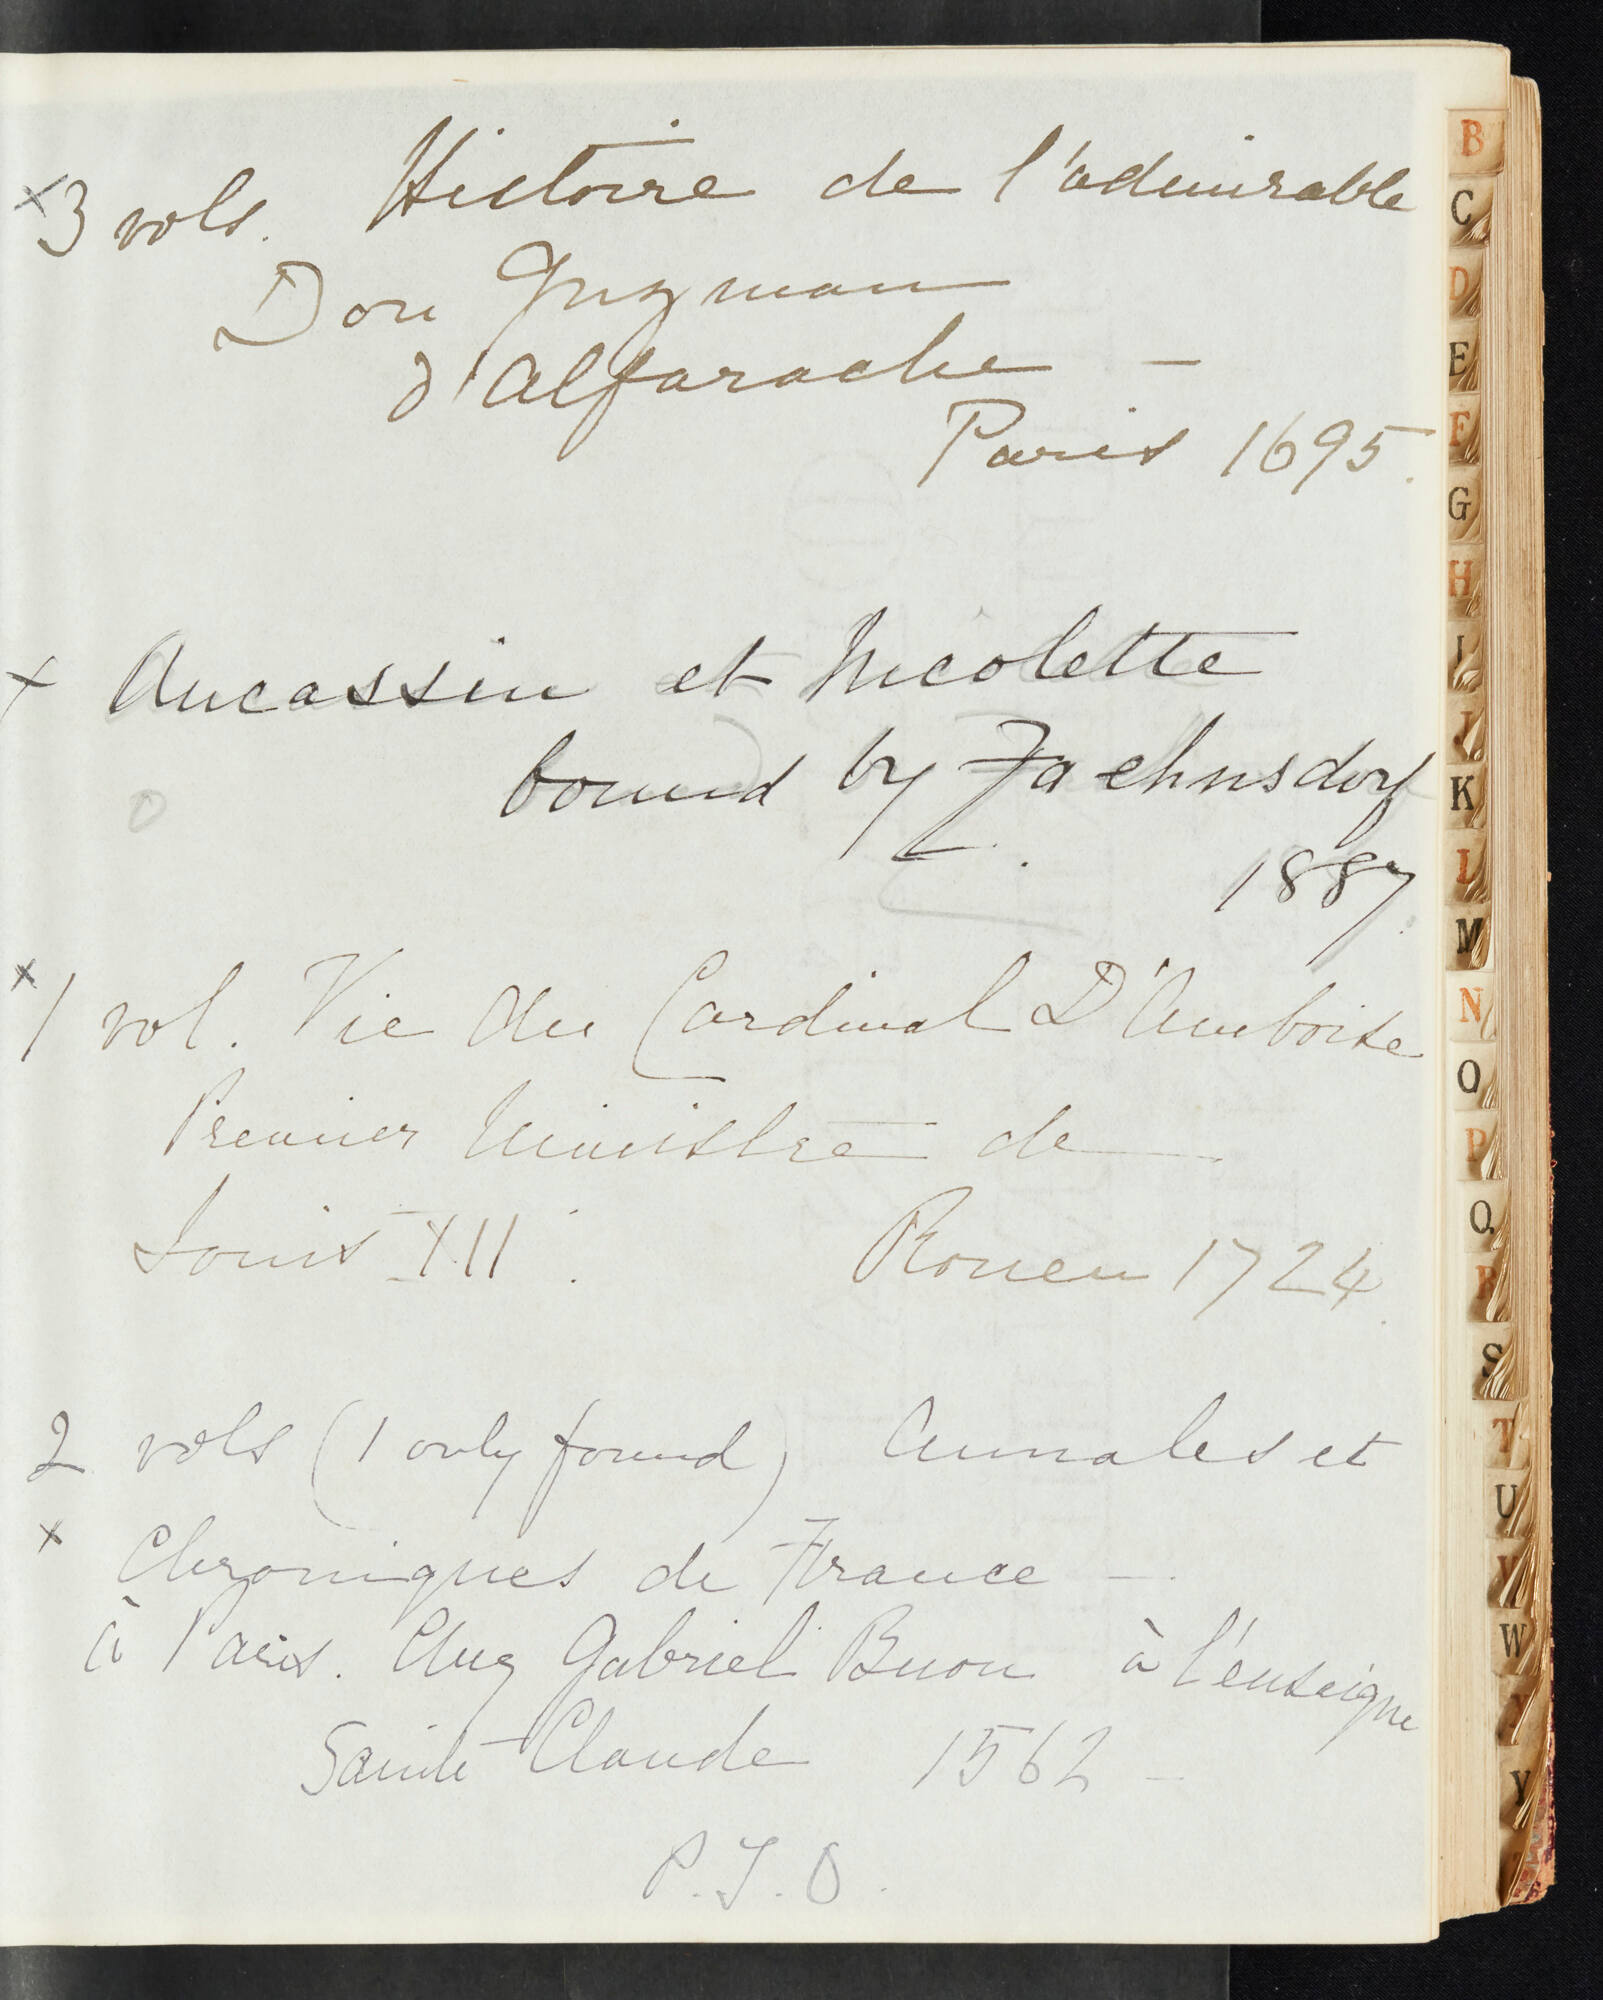 x 3 vols. Histoire de l'admirable
Don Guzman
d'Alfarache —
Paris 1695.
x Aucassin et Nicolette
bound by Zaehnsdorf
1887.
x 1 vol. Vie du Cardinal D'Amboise
Premier Ministre de
Louis XII. Rouen 1724.
2 vols (1 only found) Annales et
x Chroniques de France —
à Paris. Chez Gabriel Buon à l'enseigne
Sainte Claude 1562 —
P.T.O.
B
C
D
E
F
G
H
I
J
K
L
M
N
O
P
Q
R
S
T
U
V
W
X
Y